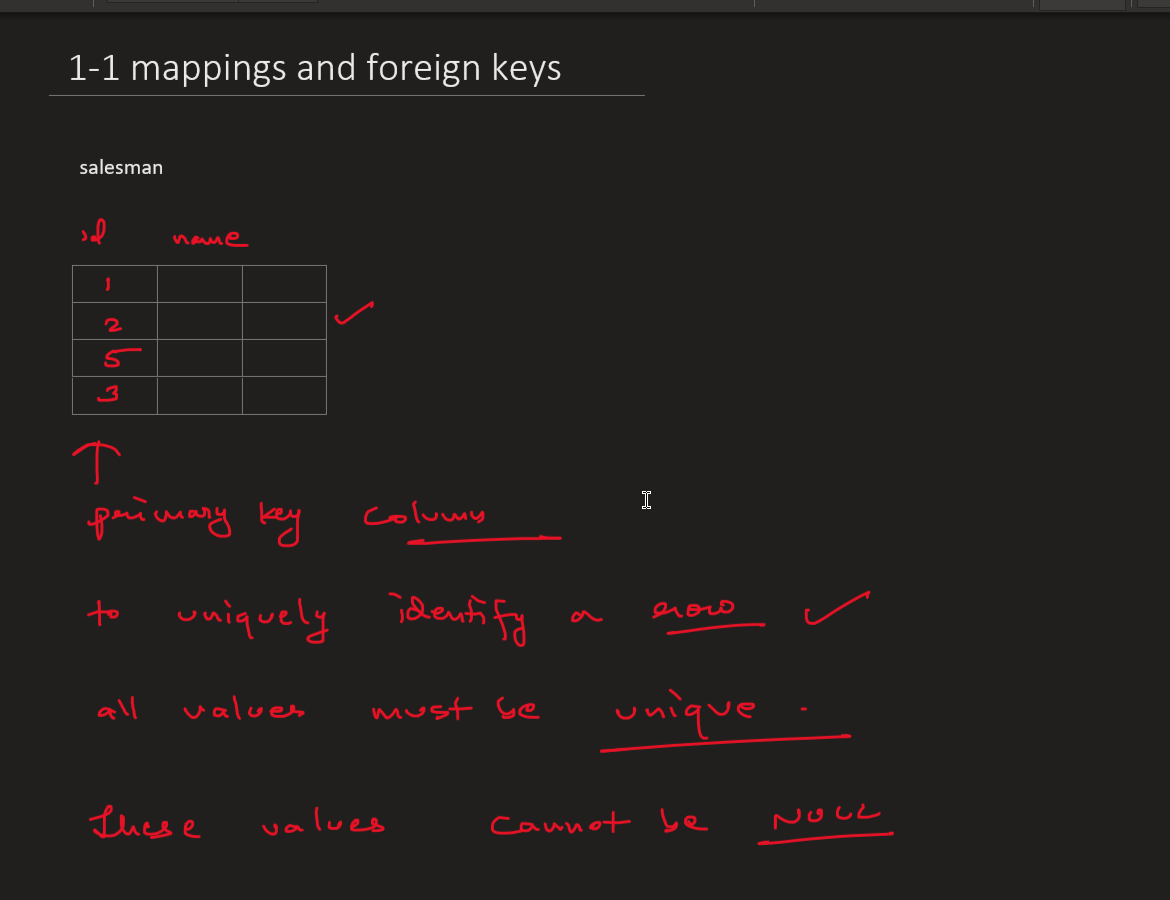 1-1 mappings and foreign keys
salesman
id name
1
2
5
3
primary key column
to uniquely identify a row
all values must be unique .
These values cannot be NULL